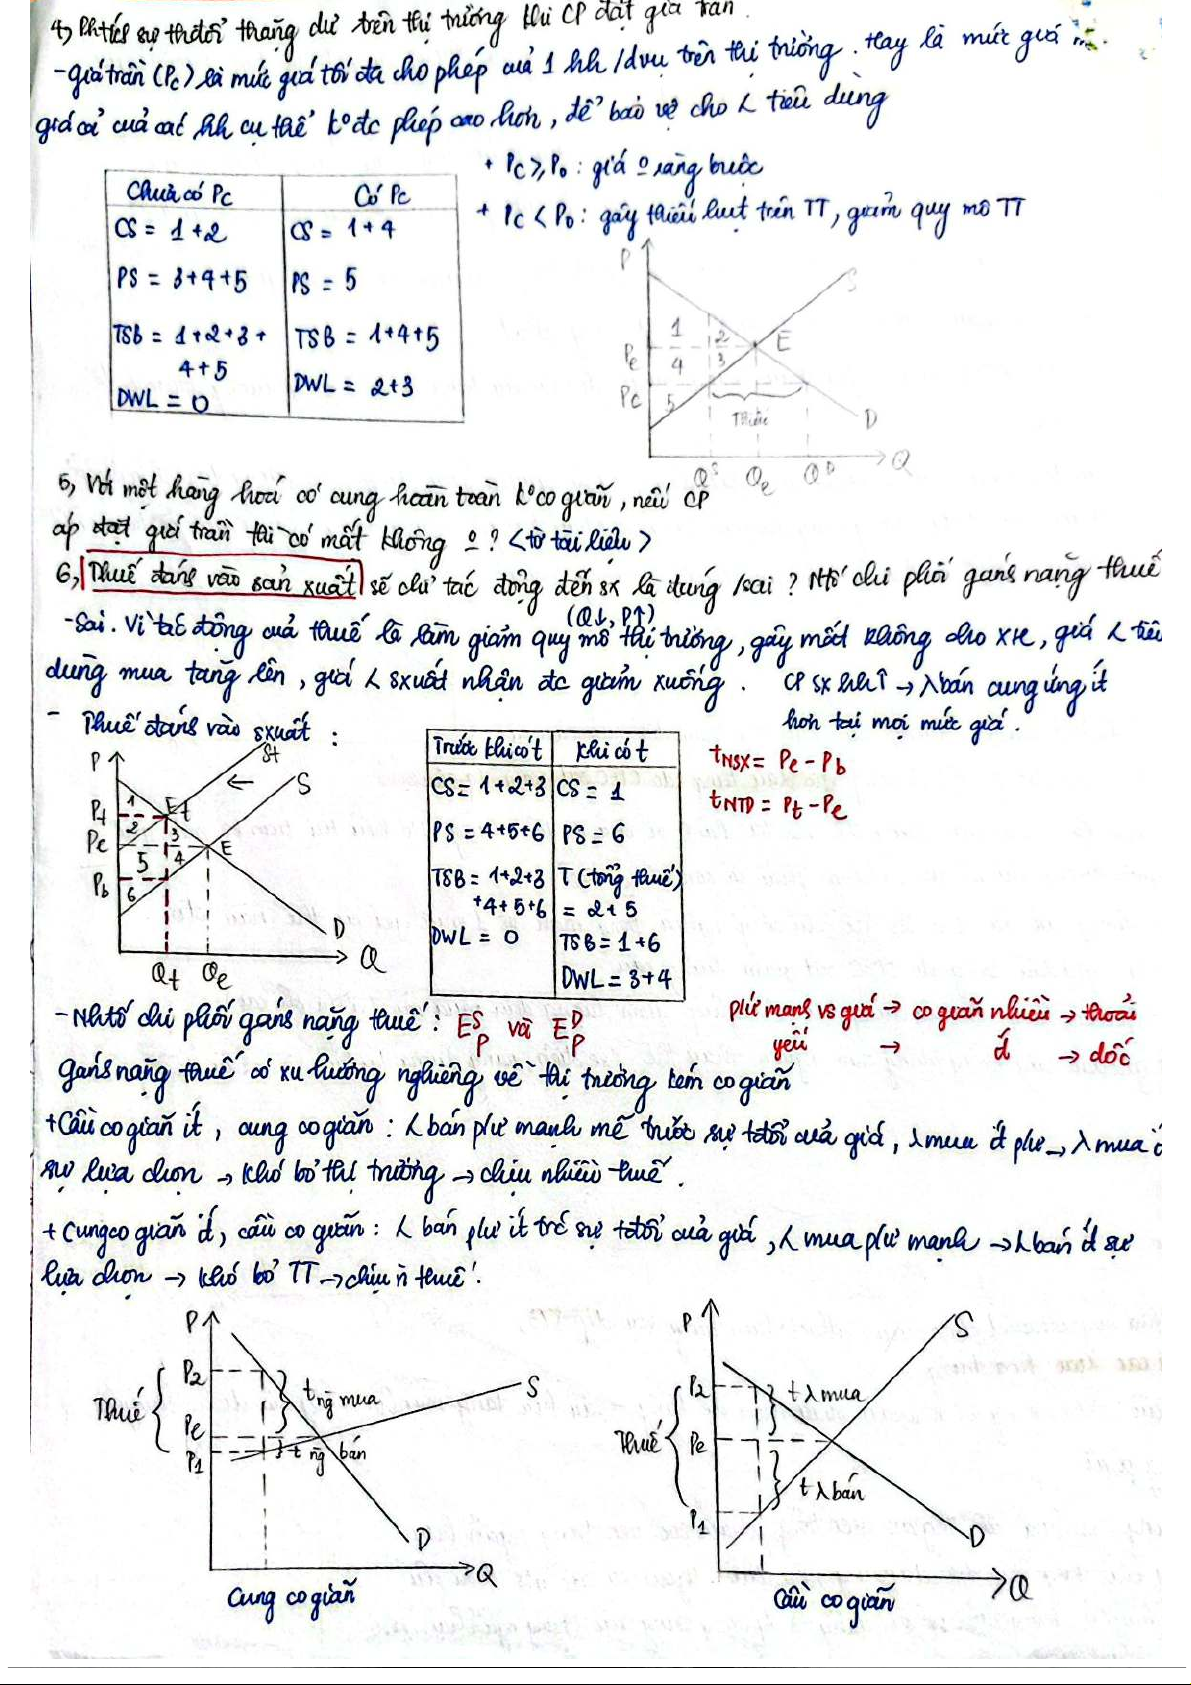 4, Phtích sự thđổi thặng dư trên thị trường khi CP đặt giá trần.
- giá trần (Pc) là mức giá tối đa cho phép của 1 hh/dvụ trên thị trường. Hay là mức giá
giá cả của các hh cụ thể k° đc phép cao hơn, để bảo vệ cho < tiêu dùng
+ Pc ≥ P₀ : giá º ràng buộc
+ Pc < P₀ : gây thiếu hụt trên TT, giảm quy mô TT
Chưa có Pc
Có Pc
CS = 1+2
CS = 1+4
PS = 3+4+5
PS = 5
TSB = 1+2+3+
4+5
TSB = 1+4+5
DWL = 0
DWL = 2+3
P
S
1
2
E
Pe
4
3
Pc
5
Thiếu
D
Qˢ
Qe
Qᴰ
Q
5, Với một hàng hoá có cung hoàn toàn k° co giãn, nếu CP
áp đặt giá trần thì có mất không º ? <tờ tài liệu>
6, Thuế đánh vào sản xuất sẽ chỉ tác động đến sx là đúng/sai ? Ntố chi phối gánh nặng thuế
(Q↓, P↑)
- Sai. Vì tác động của thuế là làm giảm quy mô thị trường, gây mất không cho XH, giá < tiêu
dùng mua tăng lên, giá < sxuất nhận đc giảm xuống.
CP sx hh↑ → λ bán cung ứng ít
hơn tại mọi mức giá.
- Thuế đánh vào sxuất :
P
St
S
Pt
1
Et
2
3
Pe
5
4
E
Pb
6
D
Qt
Qe
Q
Trước khi có t
Khi có t
CS = 1+2+3
CS = 1
PS = 4+5+6
PS = 6
TSB = 1+2+3
+4+5+6
T (tổng thuế)
= 2+5
DWL = 0
TSB = 1+6
DWL = 3+4
tNSX = Pe - Pb
tNTD = Pt - Pe
- Nhtố chi phối gánh nặng thuế : Eˢp và Eᴰp
phứ mạnh vs giá → co giãn nhiều → thoải
yếu → ít → dốc
gánh nặng thuế có xu hướng nghiêng về thị trường kém co giãn
+ Cầu co giãn ít, cung co giãn : < bán phứ mạnh mẽ trước sự tđổi của giá, λ mua ít phứ → λ mua ít
sự lựa chọn → khó bỏ thị trường → chịu nhiều thuế.
+ Cung co giãn ít, cầu co giãn : < bán phứ ít trc sự tđổi của giá, < mua phứ mạnh → λ bán ít sự
lựa chọn → khó bỏ TT → chịu n̄ thuế.
P
P₂
Thuế
Pe
P₁
t ng̀ mua
t ng̀ bán
S
D
Q
Cung co giãn
P
P₂
Thuế
Pe
P₁
t λ mua
t λ bán
S
D
Q
Cầu co giãn